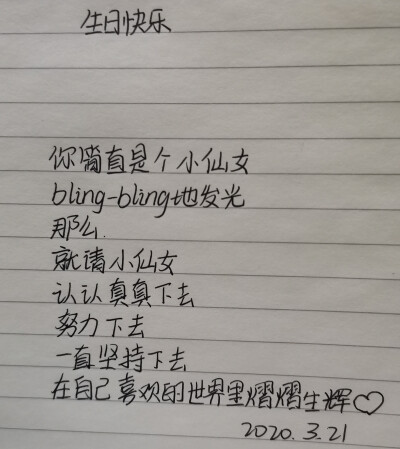 生日快乐
你简直是个小仙女
bling-bling地发光
那么.
就请小仙女
认认真真下去
努力下去
一直坚持下去
在自己喜欢的世界里熠熠生辉♡
2020.3.21